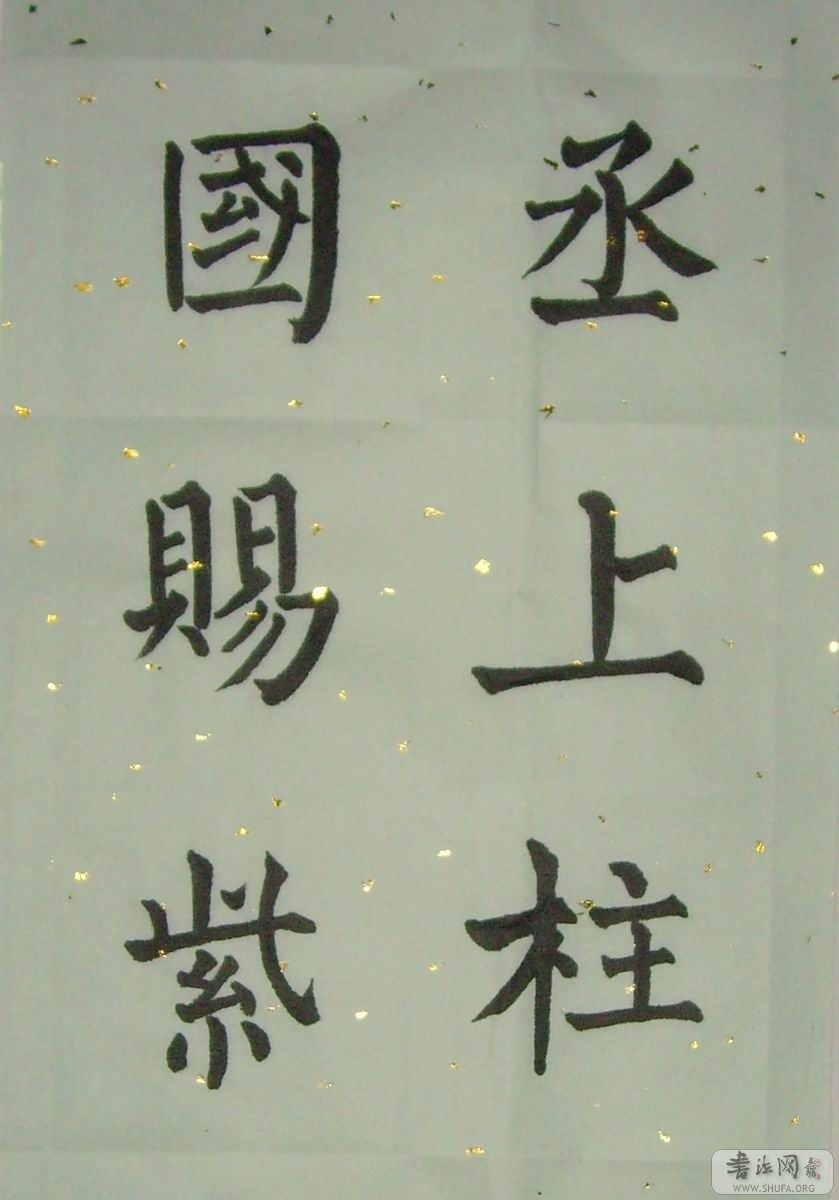 丞上柱
國賜紫
书法网
WWW.SHUFA.ORG